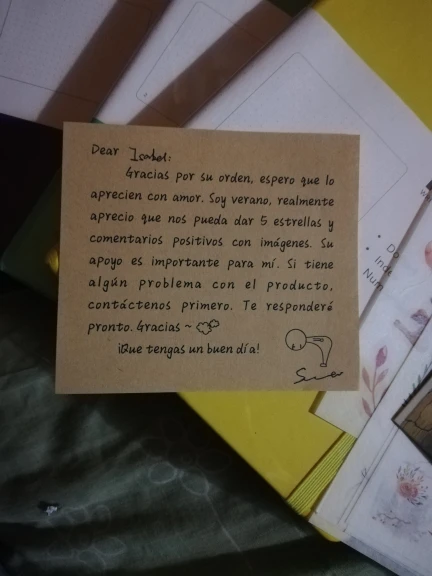 Dear Isabel:
Gracias por su orden, espero que lo
aprecien con amor. Soy verano, realmente
aprecio que nos pueda dar 5 estrellas y
comentarios positivos con imágenes. Su
apoyo es importante para mí. Si tiene
algún problema con el producto,
contáctenos primero. Te responderé
pronto. Gracias ~
¡Que tengas un buen día!
Do
Inde
Num